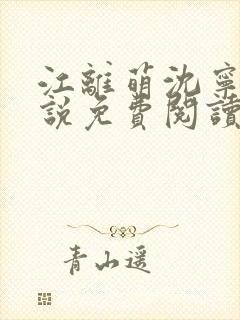 江離萌沈寧
說免費閱讀
青山遥